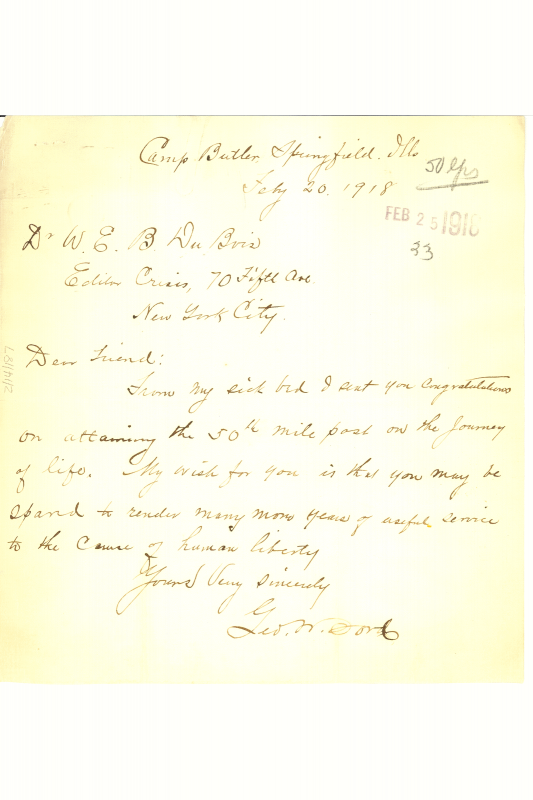 Camp Butler Springfield. Ills
50 yrs
Feby 20. 1918
FEB 25 1918
33
Dr W. E. B Du Bois
Editor Crisis, 70 Fifth Ave.
New York City.
Dear Friend:
From my sick bed I sent you Congratulations
on attaining the 50th mile post on the Journey
of life. My wish for you is that you may be
spared to render many more years of useful service
to the Cause of human liberty
Yours Very Sincerely
Geo. W. Ford